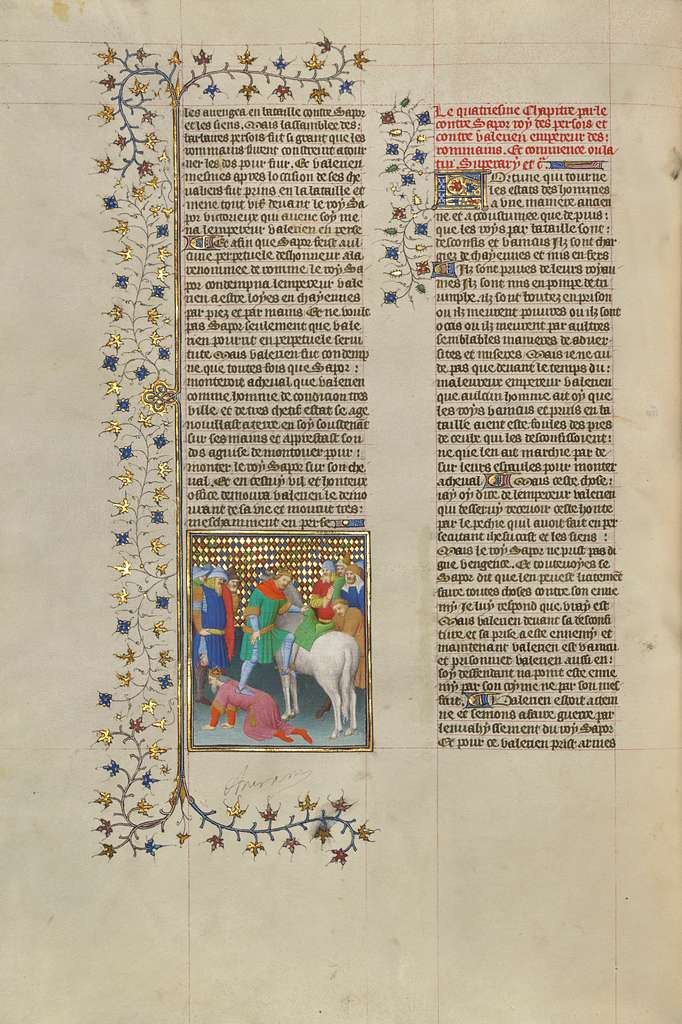 les auengea en bataille contre Sapor
et les siens. Mais lassamblee des
barbares persois fut si grant que les
rommains furent constreins a tour
ner les dos pour fuir. Et valerien
mesmes apres loccision de ses che
valiers fut prins en la bataille et
mene tout vif deuant le roy Sa
por victorieux qui auenc soy me
na lempereur valerien en perse
Et afin que Sapor feist aul
cune perpetuele deshonneur a la
renommee de romme le roy Sa
por condempna lempereur vale
rien a estre loyes en chayennes
par piez et par mains. Et ne voult
pas Sapor seulement que vale
rien pourrit en perpetuele serui
tute. Mais valerien fut condemp
ne que toutes fois que Sapor
monteroit a cheual que valerien
comme homme de condicion tres
ville et de tres chetif estat se age
nouillast a terre en soy soustenant
sur ses mains et aprestast son
dos a guise de montouer pour
monter le roy Sapor sur son che
ual. Et en cestuy vil et honteux
office demoura valerien le demo
urant de sa vie et mourut tres
meschamment en perse
Le quatriesme Chapitre parle
contre Sapor roy des persois et
contre valerien empereur des
rommains. Et commence ou la
tin. Superary et c̃
Fortune qui tourne
les estats des hommes
a vne maniere ancien
ne et acoustumee que depuis
que les roys par bataille sont
desconfis et vaincus Ilz sont char
giez de chayennes et mis en fers
Ilz sont priues de leurs royau
mes Ilz sont mis en pompe de tri
umphe. ilz sont boutez en prison
ou ilz meurent poures ou ilz sont
occis ou ilz meurent par aultres
semblables manieres de aduer
sites et miseres. Mais ie ne cui
de pas que deuant le temps du
maleureux empereur valerien
que aulcun homme ait oy que
les roys vaincus et prins en ba
taille aient este foules des pies
de ceulx qui les desconfissoient
ne que len ait marche par de
sur leurs espaules pour monter
a cheual Mais ceste chose
iay oy dire de lempereur valerien
qui desseruy receuoir ceste honte
par le pechie quil auoit fait en per
secutant ihesucrist et les siens
Mais le roy Sapor ne prist pas di
gne vengence. Et toutenoyes se
Sapor dit que len peust licitement
faire toutes choses contre son enne
my Je luy respond que vray est
Mais valerien deuant sa desconfi
ture et sa prise a este ennemy et
maintenant valerien est vaincu
et prisonnier valerien aussi en
soy deffendant na point este enne
my par son cryme ne par son mes
fait. Valerien estoit a tern
ne et semons a faire guerre par
lenuahyssement du roy Sapor
Et pour ce valerien prist armes